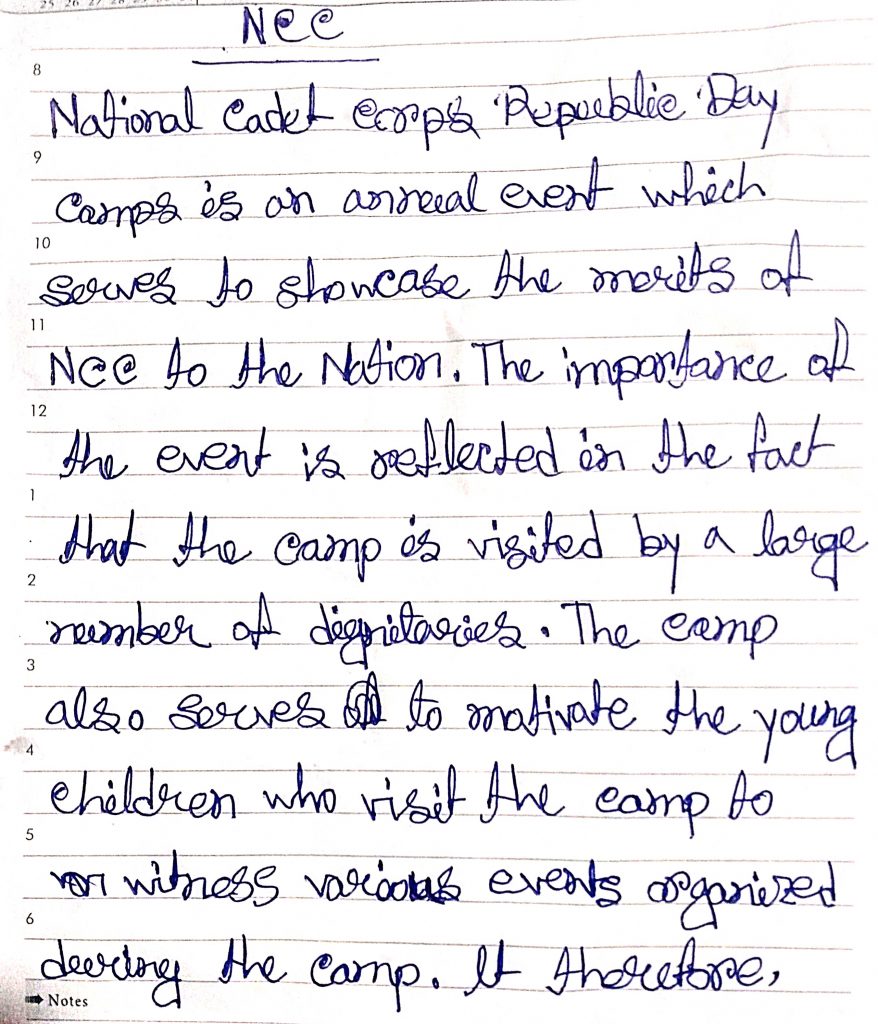 25 26 27 28 29 30 31
NCC
8
National Cadet Corps Republic Day
9
Camps is an annual event which
10
serves to showcase the merits of
11
NCC to the Nation. The importance of
12
the event is reflected in the fact
1
that the camp is visited by a large
2
number of dignitaries. The camp
3
also serves to motivate the young
4
children who visit the camp to
5
witness various events organized
6
during the camp. It therefore,
Notes